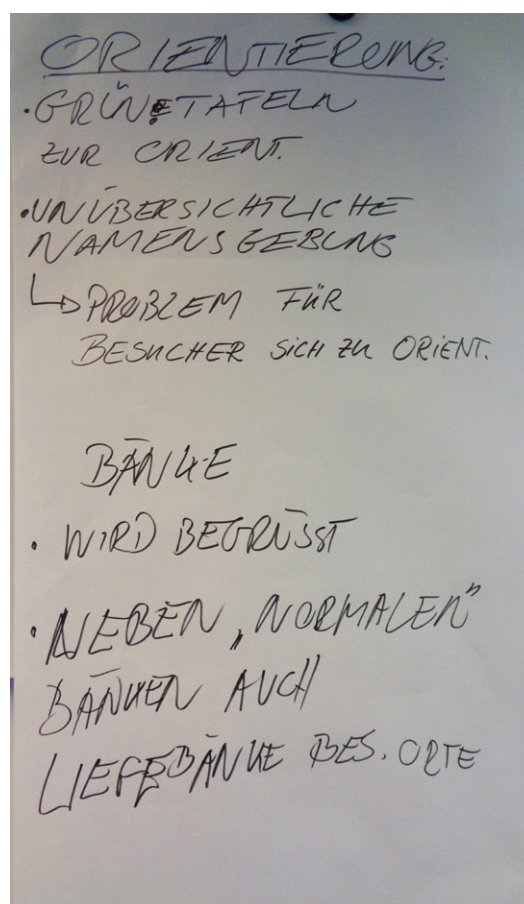 ORIENTIERUNG:
• GRÜNE TAFELN
ZUR ORIENT.
• UNÜBERSICHTLICHE
NAMENSGEBUNG
↳ PROBLEM FÜR
BESUCHER SICH ZU ORIENT.
BÄNKE
• WIRD BEGRÜSST
• NEBEN „NORMALEN"
BÄNKEN AUCH
LIEGEBÄNKE BES. ORTE